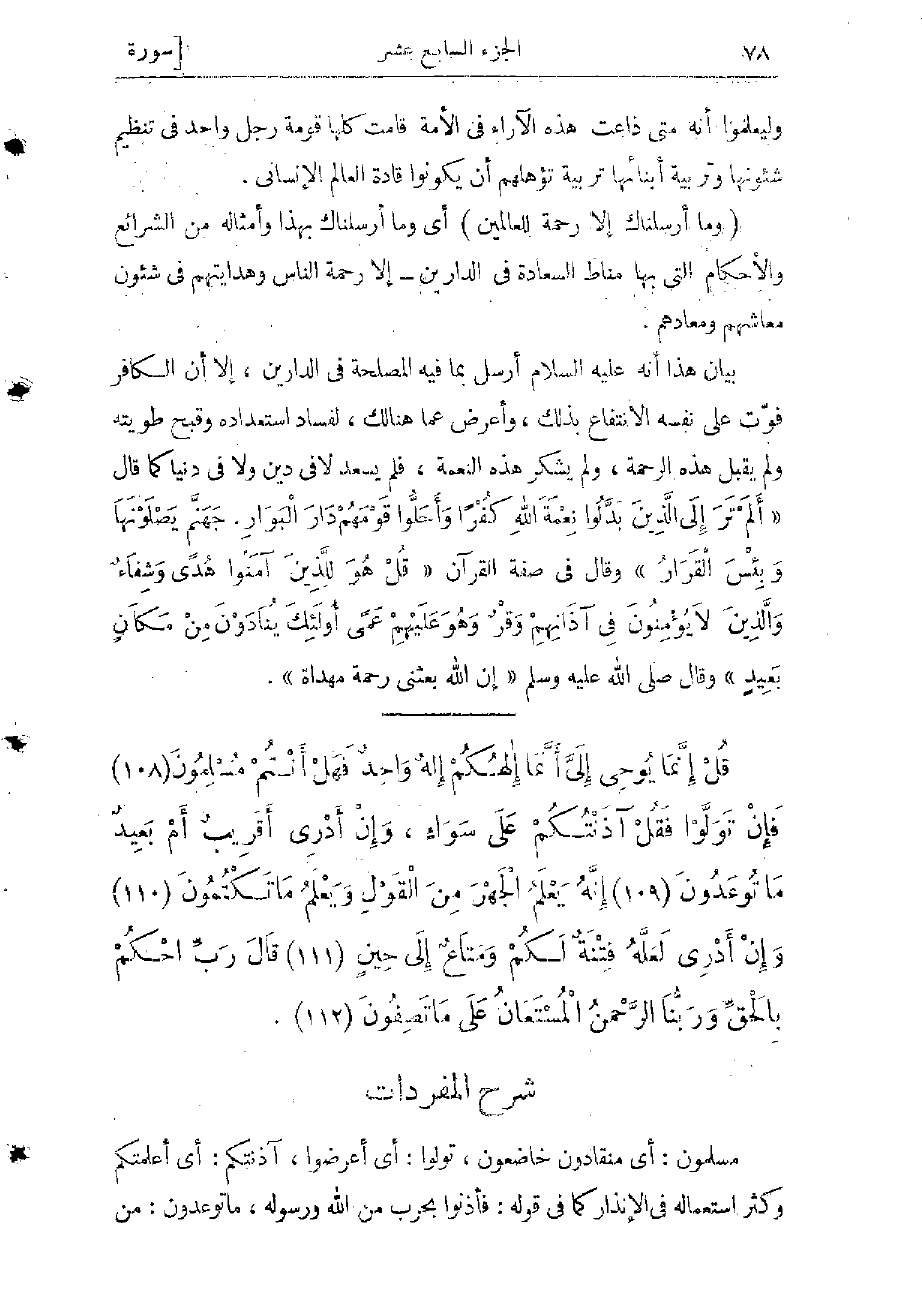 ٧٨ الجزء السابع عشر [سورة
وليعلموا أنه متى ذاعت هذه الآراء فى الأمة قامت كلها قومة رجل واحد فى تنظيم
شئونها وتربية أبنائها تربية تؤهلهم أن يكونوا قادة العالم الإنسانى .
( وما أرسلناك إلا رحمة للعالمين ) أى وما أرسلناك بهذا وأمثاله من الشرائع
والأحكام التى بها مناط السعادة فى الدارين ــ إلا رحمة الناس وهدايتهم فى شئون
معاشهم ومعادهم .
بيان هذا أنه عليه السلام أرسل بما فيه المصلحة فى الدارين ، إلا أن الكافر
فوّت على نفسه الانتفاع بذلك ، وأعرض عما هنالك ، لفساد استعداده وقبح طويته
ولم يقبل هذه الرحمة ، ولم يشكر هذه النعمة ، فلم يسعد لا فى دين ولا فى دنيا كما قال
« أَلَمْ تَرَ إِلَى الَّذِينَ بَدَّلُوا نِعْمَةَ اللهِ كُفْرًا وَأَحَلُّوا قَوْمَهُمْ دَارَ الْبَوَارِ . جَهَنَّمَ يَصْلَوْنَهَا
وَبِئْسَ الْقَرَارُ » وقال فى صفة القرآن « قُلْ هُوَ لِلَّذِينَ آمَنُوا هُدًى وَشِفَاءٌ
وَالَّذِينَ لاَ يُؤْمِنُونَ فِى آذَانِهِمْ وَقْرٌ وَهُوَ عَلَيْهِمْ عَمًى أُولَئِكَ يُنَادَوْنَ مِنْ مَكَانٍ
بَعِيدٍ » وقال صلى الله عليه وسلم « إن الله بعثنى رحمة مهداة » .
قُلْ إِنَّمَا يُوحَى إِلَىَّ أَنَّمَا إِلٰهُكُمْ إِلهٌ وَاحِدٌ فَهَلْ أَنْتُمْ مُسْلِمُونَ (١٠٨)
فَإِنْ تَوَلَّوْا فَقُلْ آذَنْتُكُمْ عَلَى سَوَاءٍ ، وَإِنْ أَدْرِى أَقَرِيبٌ أَمْ بَعِيدٌ
مَا تُوعَدُونَ (١٠٩) إِنَّهُ يَعْلَمُ الْجَهْرَ مِنَ الْقَوْلِ وَيَعْلَمُ مَا تَكْتُمُونَ (١١٠)
وَإِنْ أَدْرِى لَعَلَّهُ فِتْنَةٌ لَكُمْ وَمَتَاعٌ إِلَى حِينٍ (١١١) قَالَ رَبِّ احْكُمْ
بِالْحَقِّ وَرَبُّنَا الرَّحْمنُ الْمُسْتَعَانُ عَلَى مَا تَصِفُونَ (١١٢) .
شرح المفردات
مسلمون : أى منقادون خاضعون ، تولوا : أى أعرضوا ، آذنتكم : أى أعلمتكم
وكثر استعماله فى الإنذار كما فى قوله : فأذنوا بحرب من الله ورسوله ، ما توعدون : من